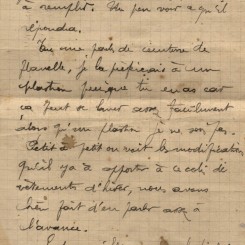 à remplir. Un peu voir ce qu'il
répondra.
Tu me parles de ceinture de
flanelle, je la préfèrerais à un
plastron parce que tu en as car
ça peut se laver assez facilement
alors qu'un plastron je ne sais pas.
Petit à petit on voit les modifications
qu'il y a à apporter à ce
vêtements d'hiver, nous avons
bien fait d'en parler assez à
l'avance.